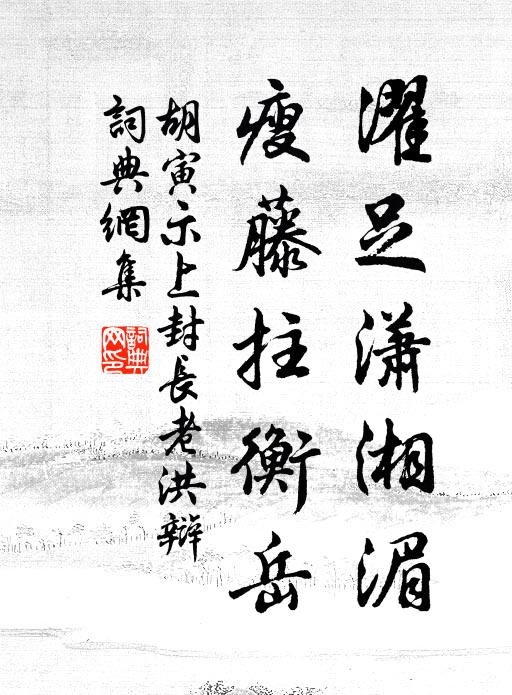 濯足瀟湘湄
瘦藤拄衡岳
胡寅示上封長老洪辯
詞典網集
詞典網印